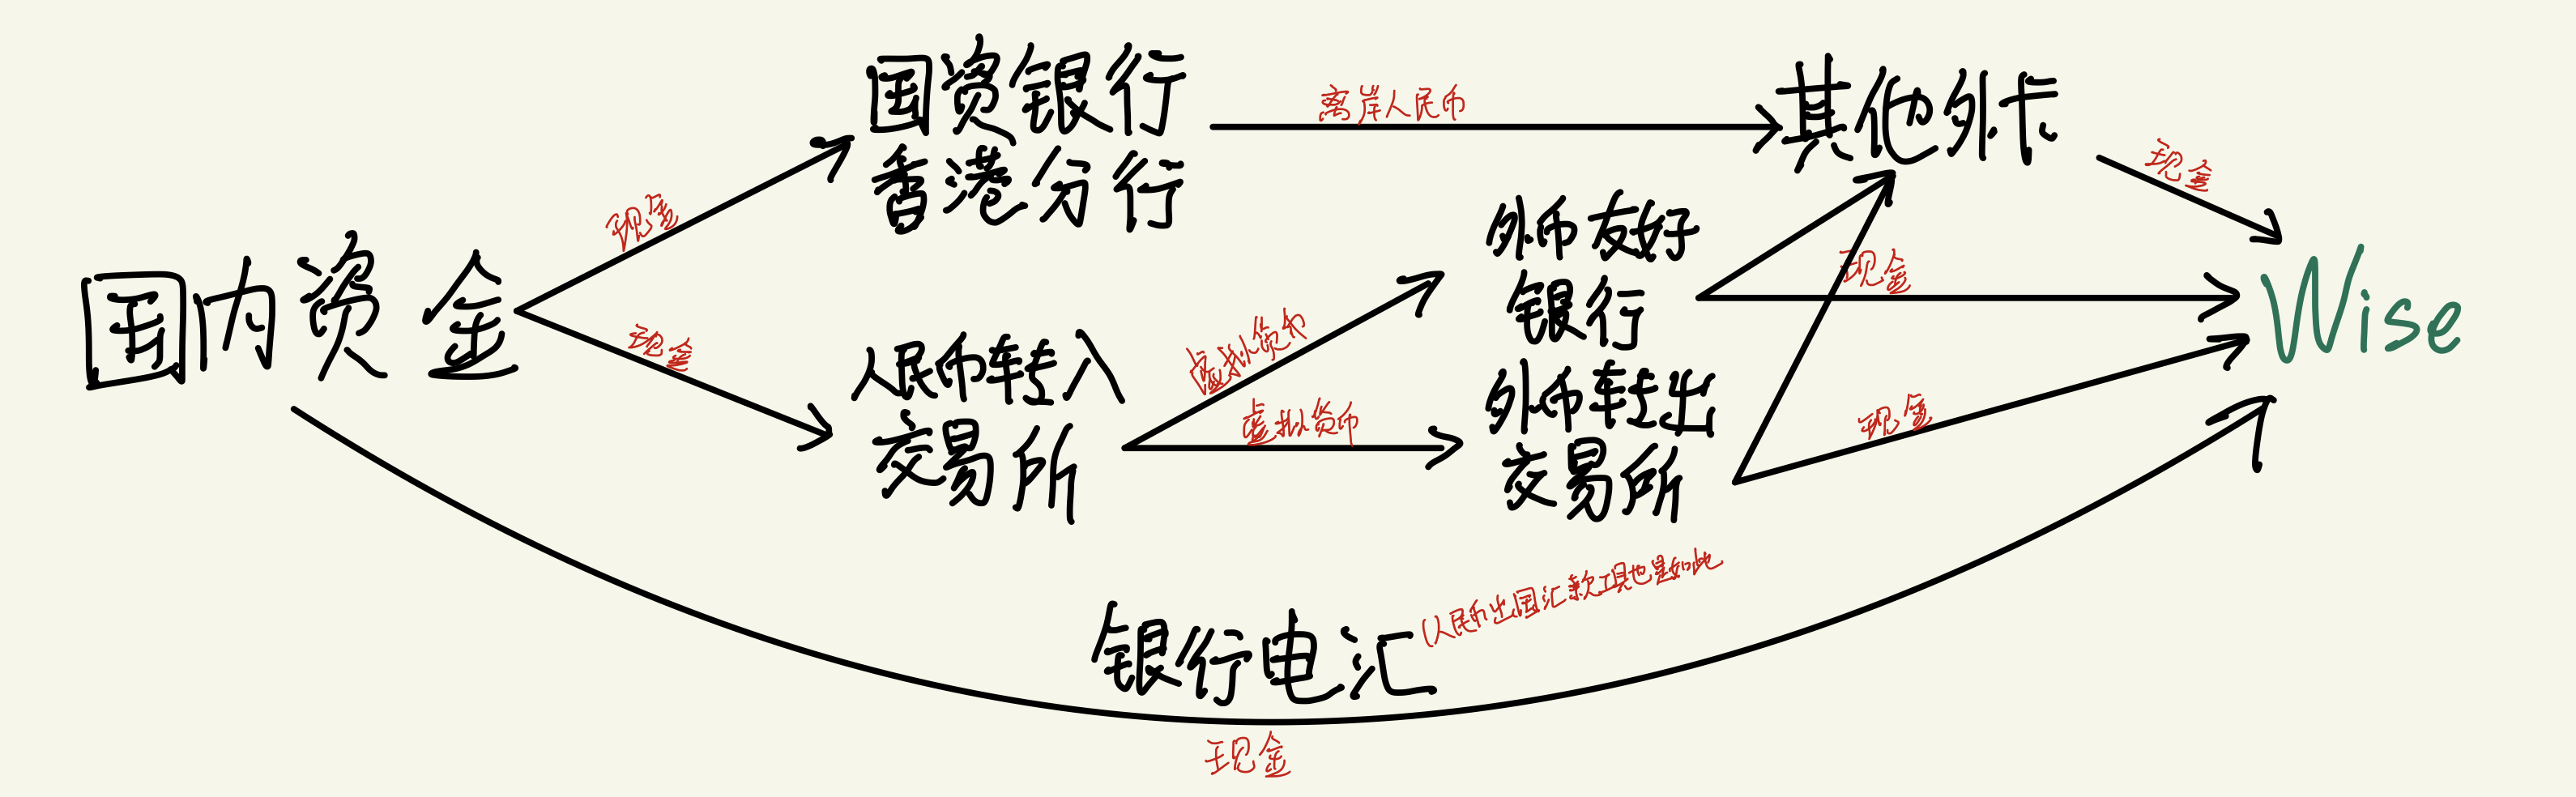 国内资金
现金
现金
国资银行
香港分行
离岸人民币
其他外卡
现金
人民币转入
交易所
虚拟货币
虚拟货币
外币友好
银行
外币转出
交易所
现金
现金
Wise
银行电汇
(人民币出国汇款工具也是如此
现金